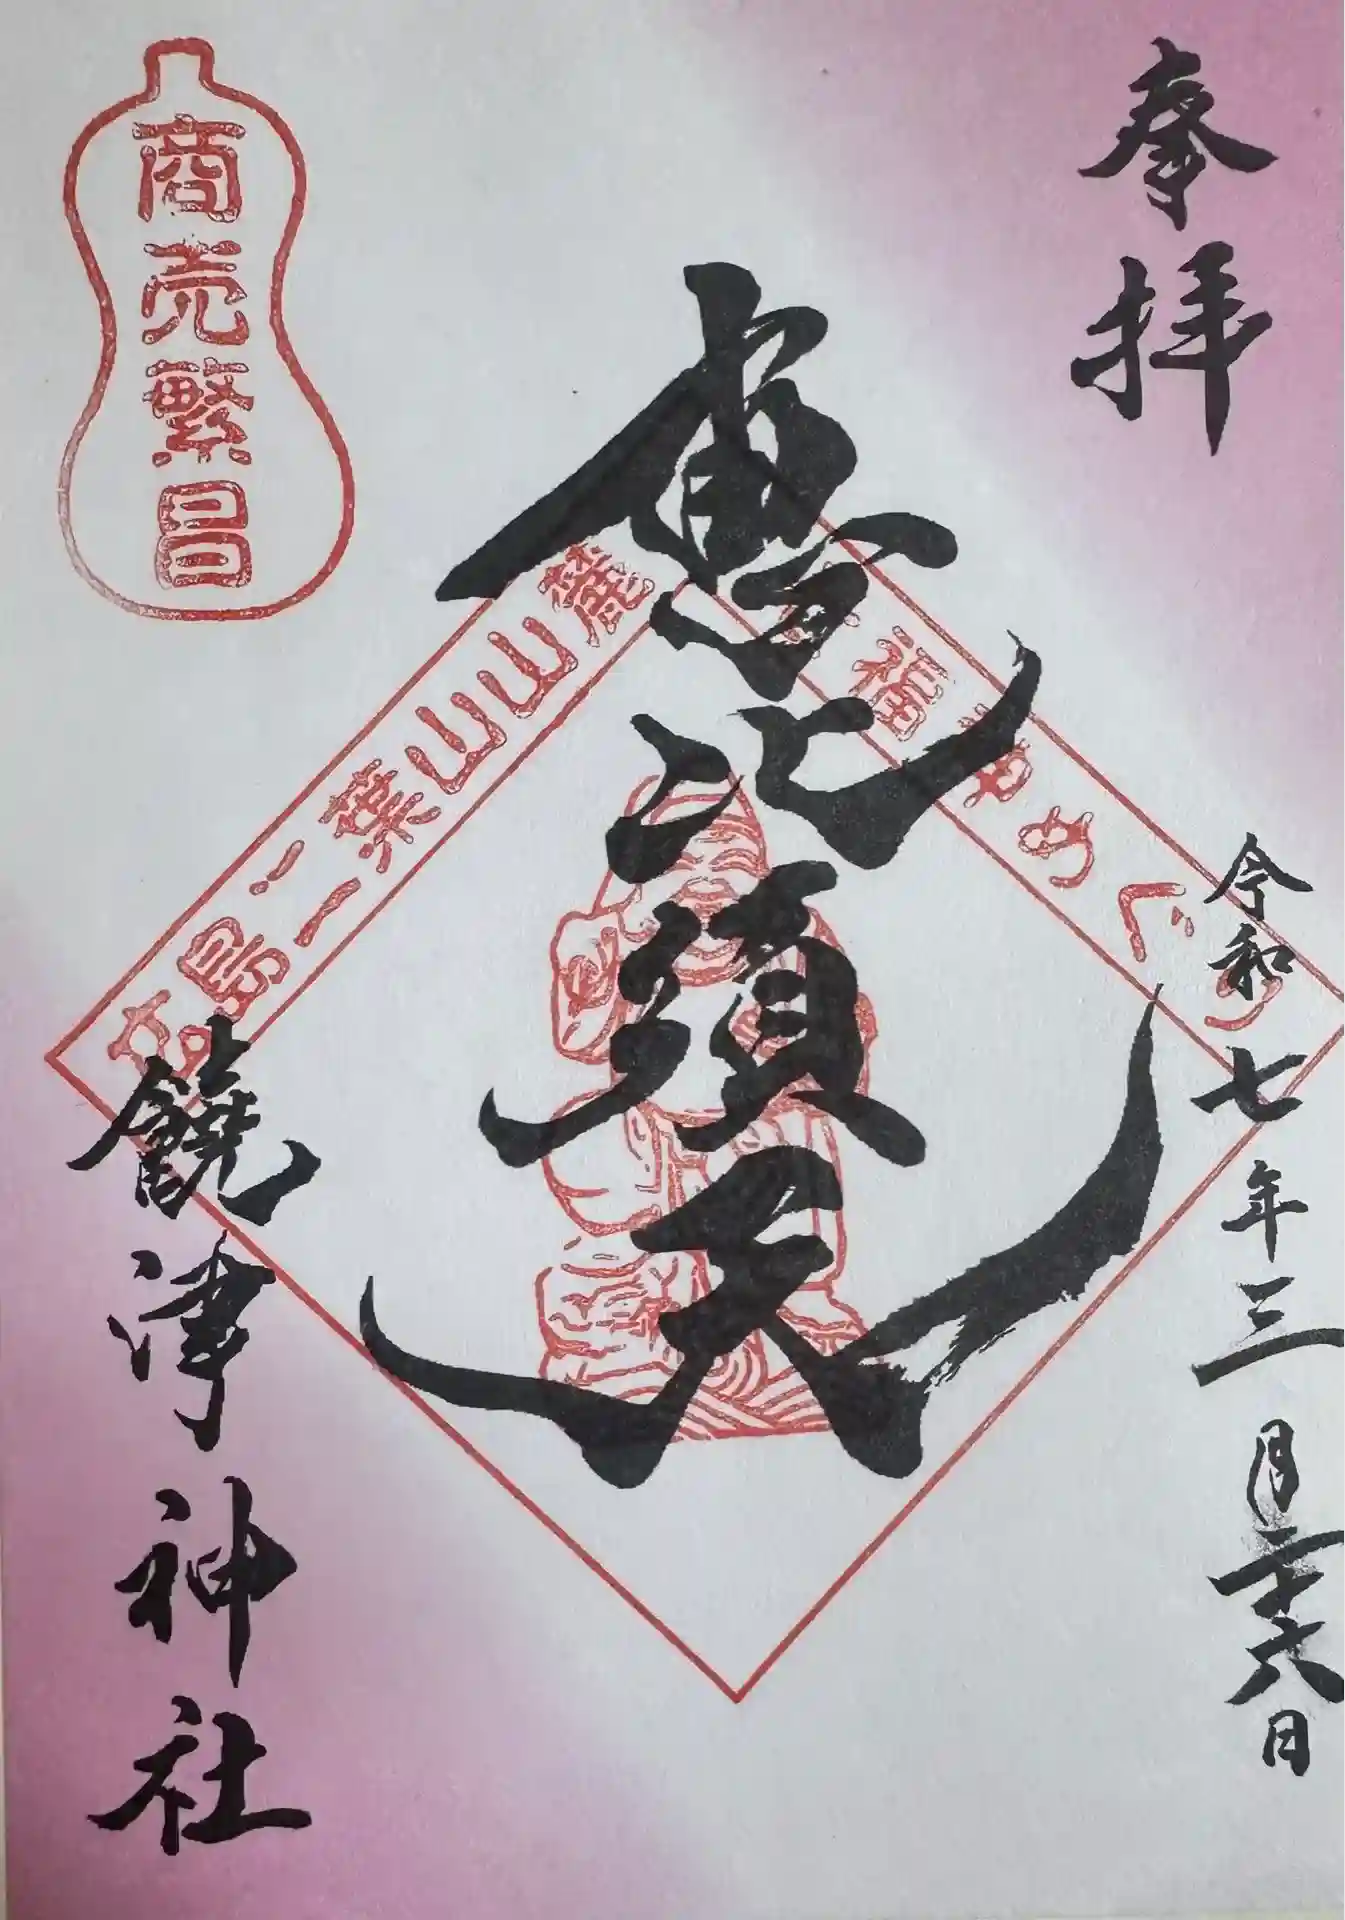 奉拝
令和七年三月二十六日
恵比須天
福やめぐり
広島二葉山山麓
商売繁昌
饒津神社